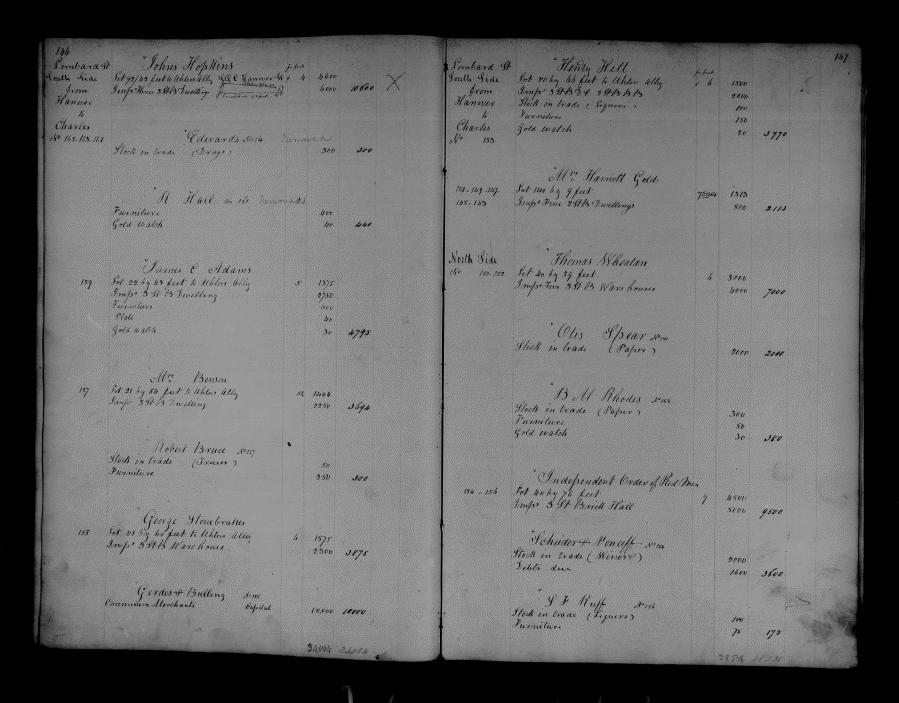 146
Lombard St
South Side
from
Hanover
to
Charles
No 165.163.161
Johns Hopkins
Lot 93/43 feet to Uhlers Alley 4 4600
Imps Three 3 St B Dwellings 6000 10600 X
Edwards No 14 Removed
Stock in trade 300 300
R Hall Removed
Furniture 400
Gold watch 40 440
James C Adams
159 Lot 22 by 43 feet to Uhlers Alley 5 1375
Imps 3 St B Dwelling 2750
Furniture 600
Plate 40
Gold watch 30 4795
Mrs Benson
157 Lot 21 by 54 feet to Uhlers Alley 1444
Imps 3 St B Dwelling 2250 3694
Robert Bruce No 157
Stock in trade 50
Furniture 250 300
George Stonebraker
155 Lot 21 by 60 feet to Uhlers Alley 1575
Imps 3 St B Warehouse 2300 3875
Gerdes & Bulling No 155
Commission Merchants Capital 10000 10000
34004 34004
147
Lombard St
South Side
from
Hanover
to
Charles
No 153
Henry Hilt
Lot 20 by 66 feet to Uhlers Alley 6 1500
Imps 3 St B D & 2 St B B B 2000
Stock in trade (Liquors) 100
Furniture 150
Gold watch 20 3770
Mrs Harriett Gold
151.149.147.
145.143
Lot 140 by 9 feet 1313
Imps Five 2 St B Dwellings 800 2113
North Side
No 150.152
Thomas Whealan
Lot 40 by 39 feet 6 3000
Imps Two 3 St B Warehouses 4000 7000
Otis Spear No 150
Stock in trade (Paper) 2000 2000
B M Rhodes No 152
Stock in trade (Paper) 300
Furniture 50
Gold watch 30 380
Independent Order of Red Men
154.156 Lot 40 by 76 feet 9 4500
Imps 3 St Brick Hall 5000 9500
Stock in trade (Wines) 2000
Debts due 1600 3600
S F Ruff No 156
Stock in trade (Liquors) 100
Furniture 75 175